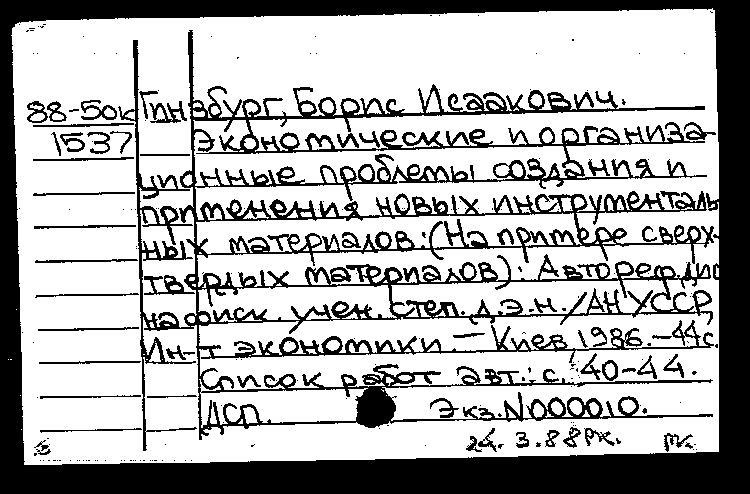 88-50к Гинзбург, Борис Исаакович.
1537 Экономические и организа-
ционные проблемы создания и
применения новых инструменталь
ных материалов: (На примере сверх-
твердых материалов): Автореф. дис
на соиск. учен. степ. д.э.н. /АН УССР,
Ин-т экономики. — Киев 1986.-44с.
Список работ авт.: с. 40-44.
ДСП. Экз.N000010.
24. 3.88